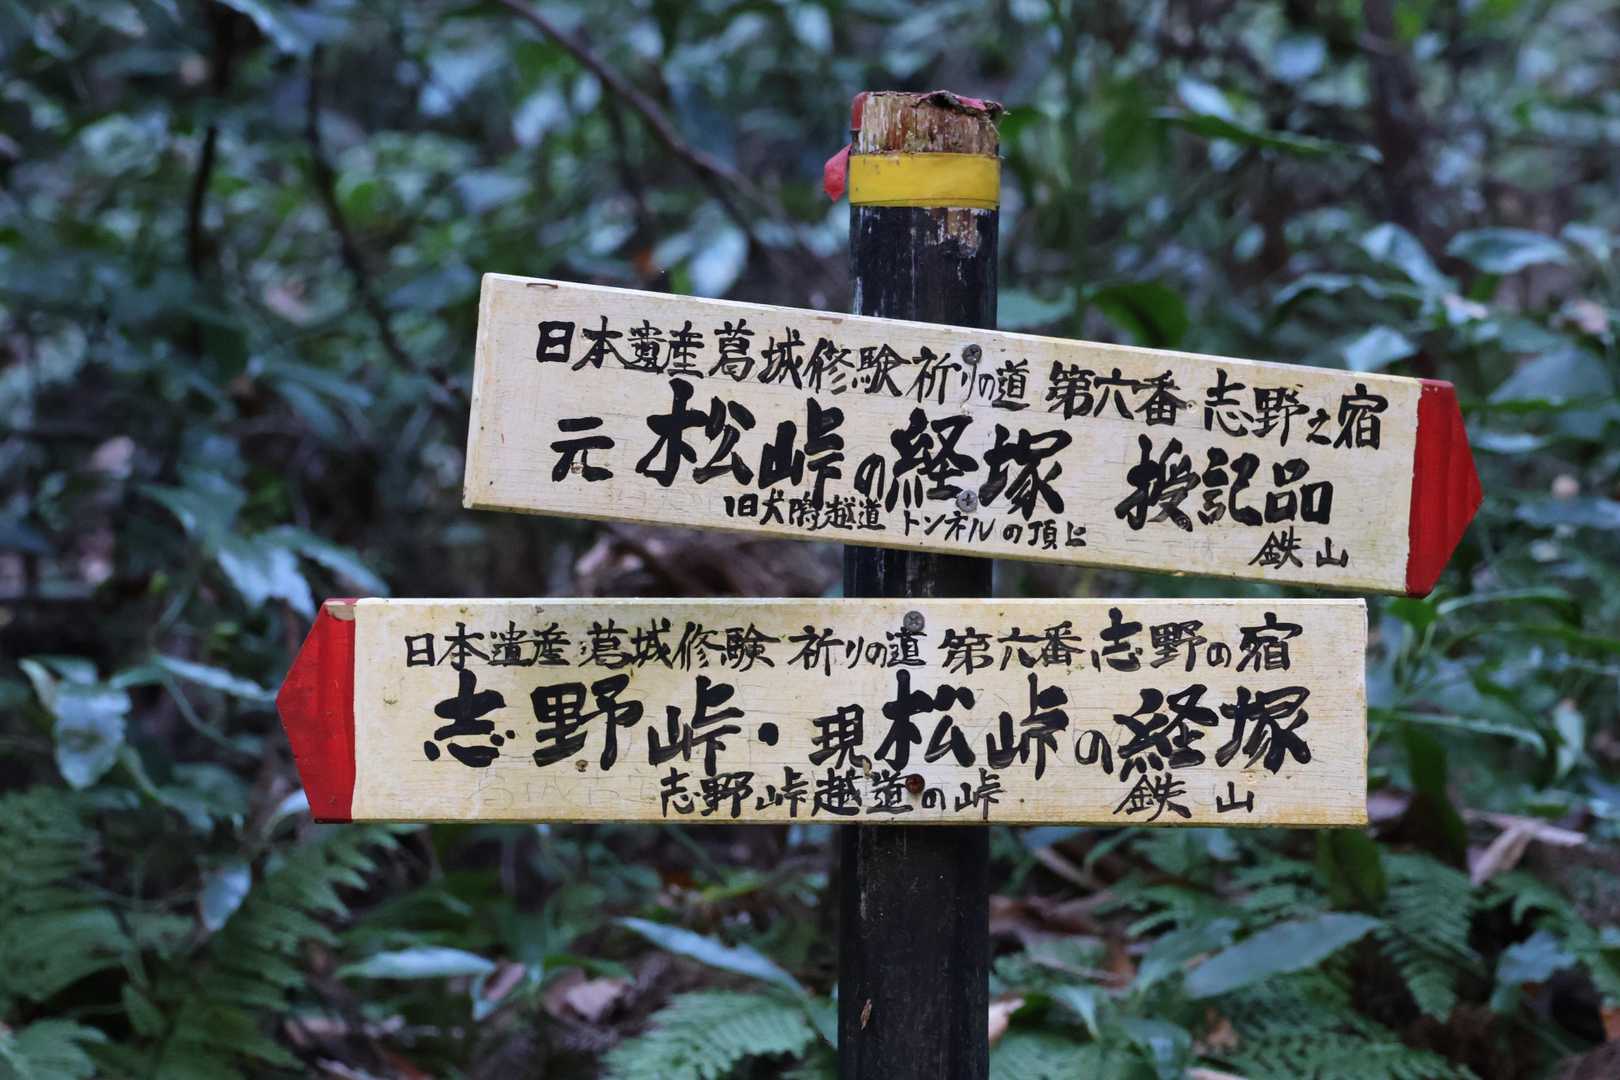 日本遺産葛城修験祈りの道 第六番 志野之宿
元松峠の経塚 授記品
旧犬飼越道 トンネルの頂上
鉄山
日本遺産葛城修験 祈りの道 第六番志野の宿
志野峠・現松峠の経塚
志野峠越道の峠 鉄山